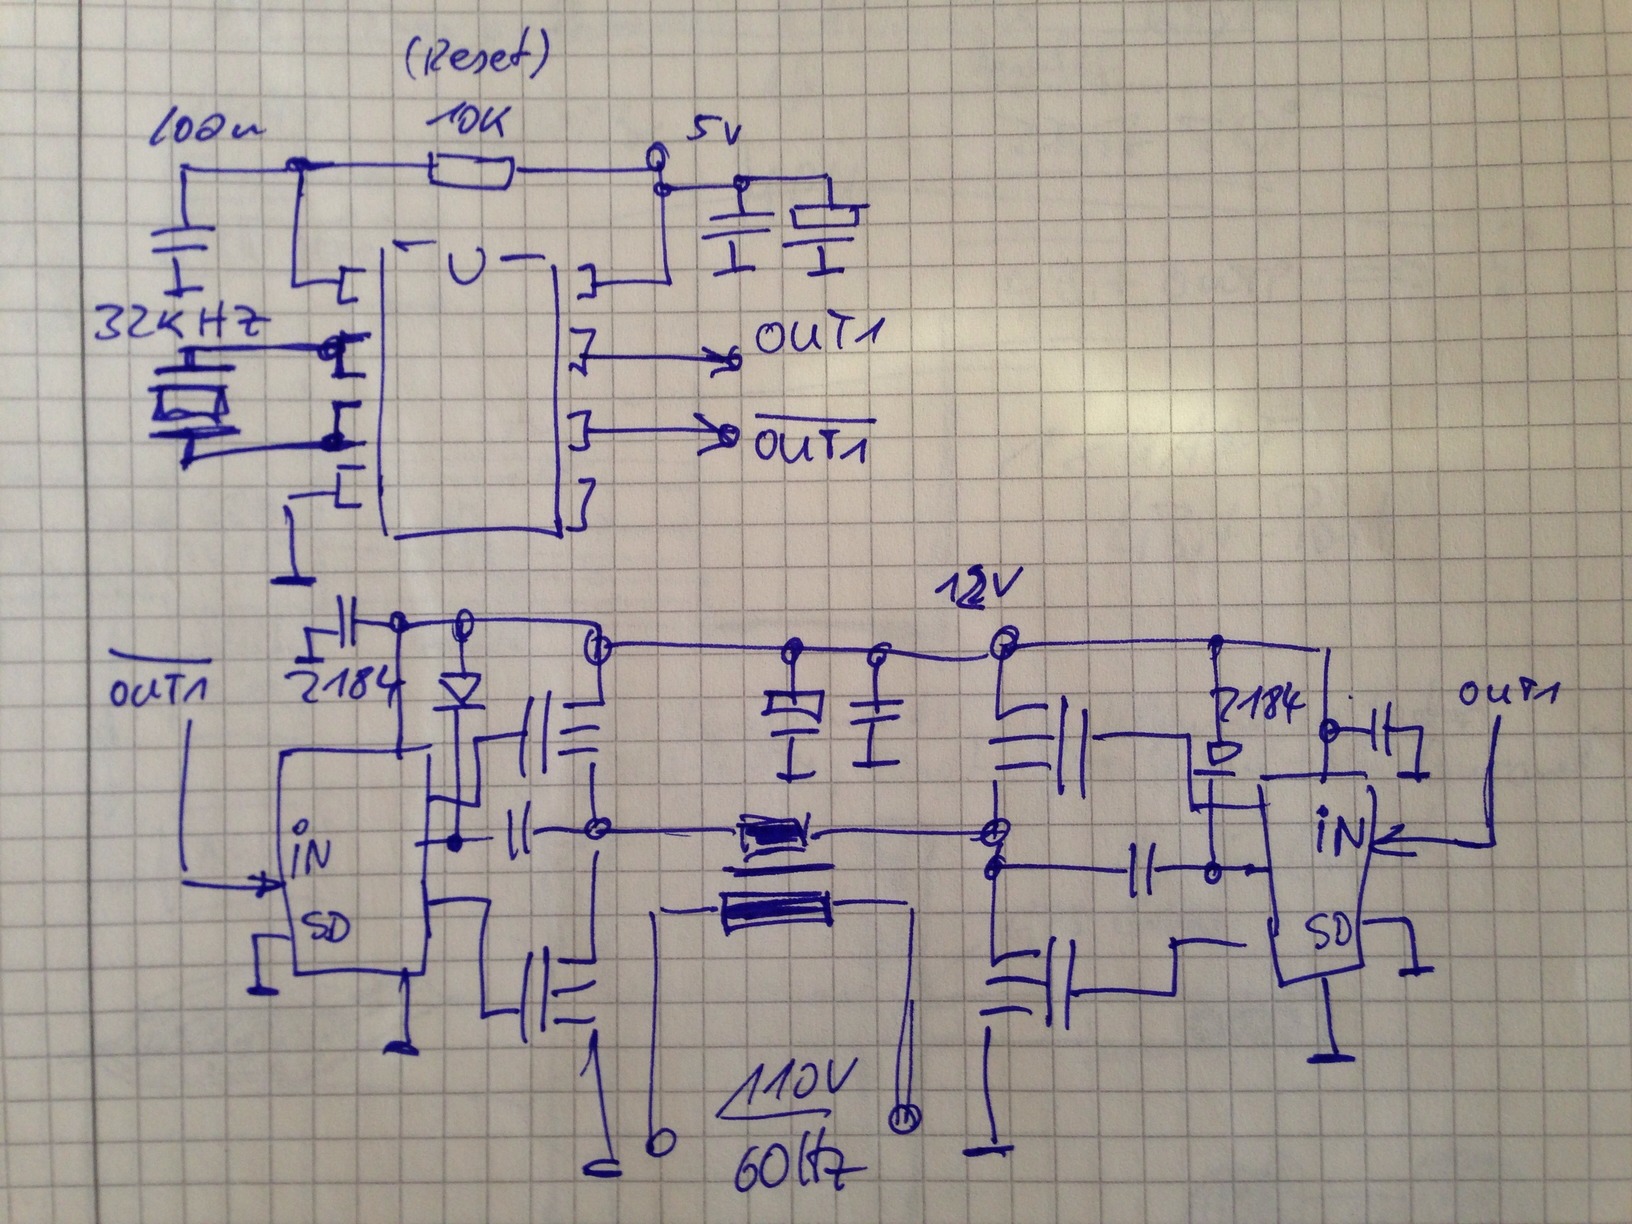 (Reset)
100n
10K
5V
32KHZ
OUT1
OUT1
12V
OUT1
2184
2184
OUT1
IN
SD
iN
SD
110V
60Hz